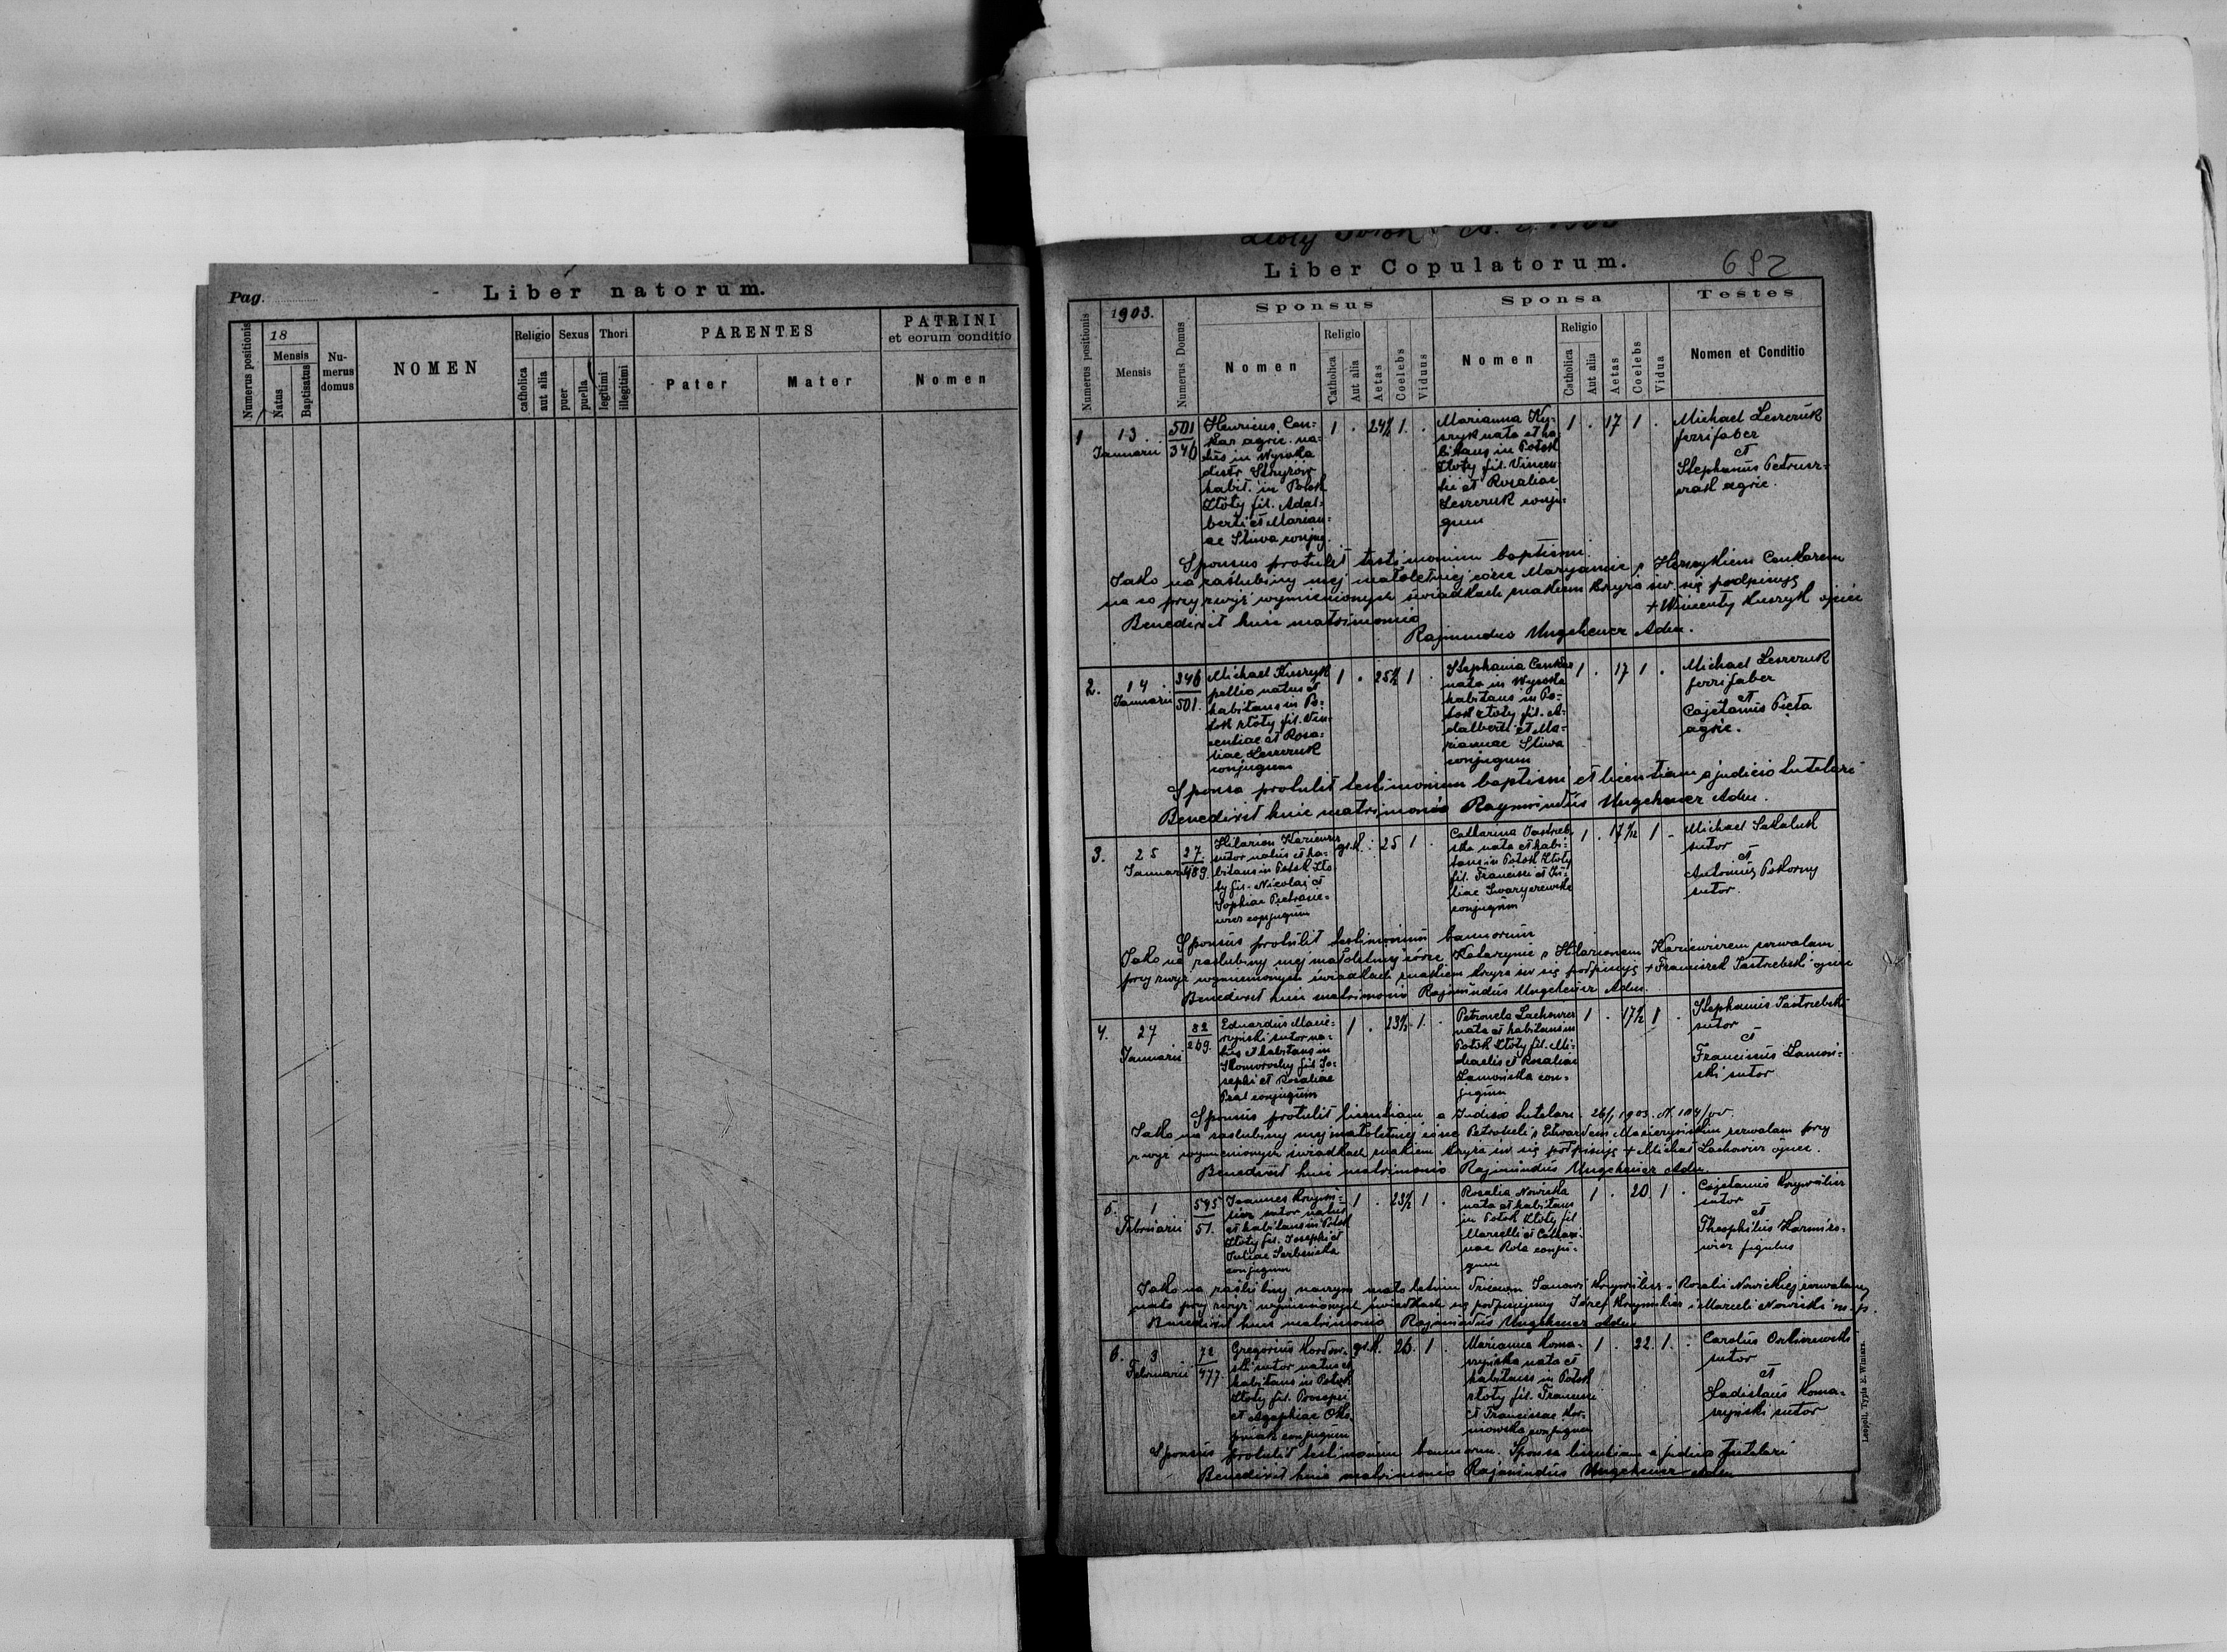 Pag.
Liber natorum.
Numerus positionis
18
Mensis
Natus
Baptisatus
Nu-
merus
domus
NOMEN
Religio
catholica
aut alia
Sexus
puer
puella
Thori
legitimi
illegitimi
PARENTES
Pater
Mater
PATRINI
et eorum conditio
Nomen
Liber Copulatorum.
692
Numerus positionis
1903.
Mensis
Numerus Domus
Sponsus
Nomen
Religio
Catholica
Aut alia
Aetas
Coelebs
Viduus
Sponsa
Nomen
Religio
Catholica
Aut alia
Aetas
Coelebs
Vidua
Testes
Nomen et Conditio
1
13
Januarii
501
346
Henricus Cen-
kar agric. na-
tus in Wysoka
distr. Strzyżów
habit. in Potok
Złoty fil. Adal-
berti et Marian-
ae Sliwa conjug.
1 . 24½ 1 .
Marianna Ku-
szryk nata et ha-
bitans in Potok
Złoty fil. Vincen-
tii et Rosaliae
Leszczuk conju-
gum
1 . 17 1 .
Michael Leszczuk
ferrifaber
et
Stephanus Petrusz-
czak agric.
Sponsus protulit testimonium baptismi.
Jako na zaślubiny mej małoletniej córce Maryannie z Henrykiem Cenkarem
na co przy wyż wymienionych świadkach znakiem krzyża św. się podpisuję
+ Wincenty Kuszryk ojciec
Benedixit huic matrimonio
Rajmundus Ungeheuer Adm.
2.
14
Januarii
346
501.
Michael Kuszryk
pellio natus et
habitans in Po-
tok złoty fil. Vin-
centiae et Rosa-
liae Leszczuk
conjugum
1 . 25½ 1
Stephania Cenkar
nata in Wysoka
habitans in Po-
tok złoty fil. A-
dalberti et Ma-
riannae Sliwa
conjugum
1 . 17 1 .
Michael Leszczuk
ferrifaber
et
Cajetanus Pięta
agric.
Sponsa protulit testimonium baptismi et licentiam a judicio tutelari
Benedixit huic matrimonio Raymundus Ungeheuer Adm.
3.
25
Januarii
27
489.
Hilarion
sutor natus et ha-
bitans in Potok Zło-
ty fil. Nicolai et
Sophiae Pietrasie-
wicz conjugum
gr.k. . 25 1
Catharina Jastrzeb-
ska nata et habi-
tans in Potok Złoty
fil. Francisci et Ju-
liae
conjugum
1 . 17½ 1 -
Michael Sakaluk
sutor
et
Antonius Pokorny
sutor.
Sponsus protulit testimonium bannorum
Jako na zaślubiny mej małoletniej córce Katarzynie z Hilarionem zezwalam
przy wyż wymienionych świadkach znakiem krzyża św. się podpisuję + Franciszek Jastrzebski ojciec
Benedixit huic matrimonio Rajmundus Ungeheuer Adm.
4.
27
Januarii
82
269.
Eduardus Macie-
rzyński sutor na-
tus et habitans in
Skomorochy fil. Jo-
sephi et Rosaliae
conjugum
1 . 23½ 1 .
Petronela Lachowicz
nata et habitans in
Potok Złoty fil. Mi-
chaelis et Rosaliae
Zamońska con-
jugum
1 . 17½ 1 .
Stephanus Jastrzebski
sutor
et
Franciscus Zamoń-
ski sutor
Sponsus protulit licentiam a Judicio tutelari 26/1 1903.
Jako na zaślubiny mej małoletniej córce Petroneli z Edwardem Macierzyńskim zezwalam przy
wyż wymienionych świadkach znakiem krzyża św. się podpisuję + Michał Lachowicz ojciec.
Benedixit huic matrimonio Rajmundus Ungeheuer Adm.
5.
1
Februarii
595
51.
Joannes
sutor natus
et habitans in Potok
Złoty fil. Josephi et
Juliae Serbeńska
conjugum
1 . 23½ 1
Rosalia Nowicka
nata et habitans
in Potok Złoty fil.
Marcelli et Cathari-
nae Rola conju-
gum
1 . 20 1 .
Cajetanus
sutor
et
Theophilus
figulus
Jako na zaślubiny naszym małoletnim dzieciom Janowi i Rozalii Nowickiej zezwalamy
na to przy wyż wymienionych świadkach się podpisujemy Józef i Marceli Nowicki m.p.
Benedixit huic matrimonio Rajmundus Ungeheuer Adm.
6.
3
Februarii
72
477.
Gregorius
sutor natus et
habitans in Potok
Złoty fil. Procopii
et Agaphiae
conjugum
gr.k. 26. 1
Marianna Koma-
rzyńska nata et
habitans in Potok
złoty fil. Francisci
et Franciscae
conjugum
1 . 22. 1. .
Carolus
sutor
et
Ladislaus Koma-
rzyński sutor
Sponsus protulit testimonium bannorum. Sponsa licentiam a judicio tutelari
Benedixit huic matrimonio Rajmundus Ungeheuer Adm
Leopoli, Typis E. Winiarz.